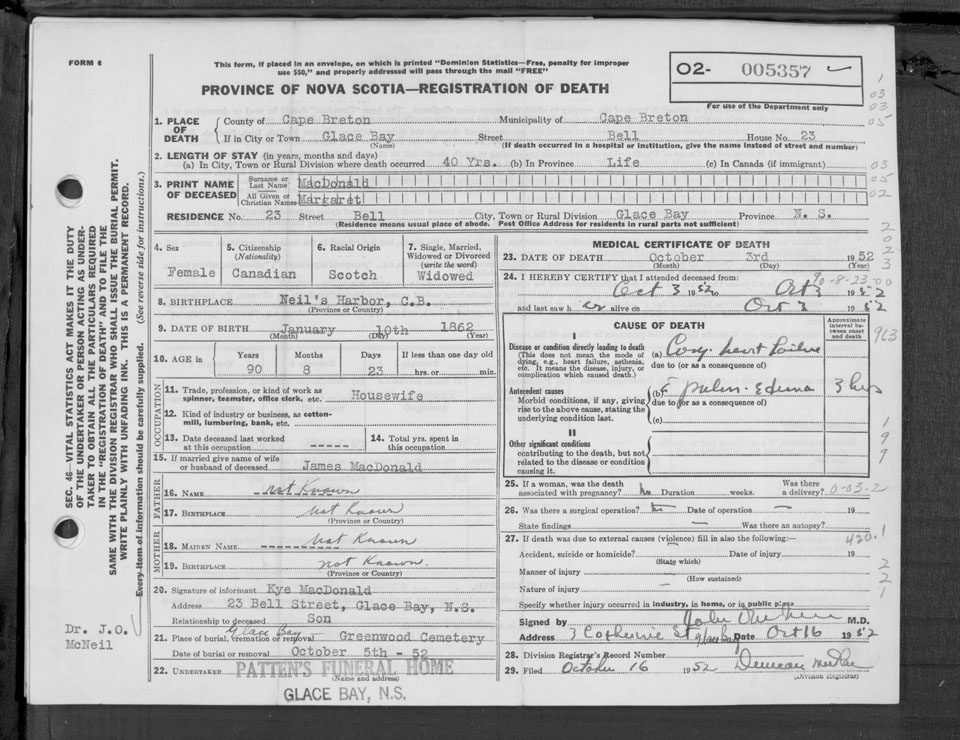 FORM 6
This form, if placed in an envelope, on which is printed "Dominion Statistics—Free, penalty for improper
use $50," and properly addressed will pass through the mail "FREE"
02- 005357
For use of the Department only
PROVINCE OF NOVA SCOTIA—REGISTRATION OF DEATH
SEC. 46—VITAL STATISTICS ACT MAKES IT THE DUTY
OF THE UNDERTAKER OR PERSON ACTING AS UNDER-
TAKER TO OBTAIN ALL THE PARTICULARS REQUIRED
IN THE "REGISTRATION OF DEATH" AND TO FILE THE
SAME WITH THE DIVISION REGISTRAR WHO SHALL ISSUE THE BURIAL PERMIT.
WRITE PLAINLY WITH UNFADING INK. THIS IS A PERMANENT RECORD.
Every item of information should be carefully supplied. (See reverse side for instructions.)
1. PLACE OF DEATH
County of Cape Breton Municipality of Cape Breton
If in City or Town Glace Bay Street Bell House No. 23
(Name) (If death occurred in a hospital or institution, give the name instead of street and number)
2. LENGTH OF STAY (in years, months and days)
(a) In City, Town or Rural Division where death occurred 40 Yrs. (b) In Province Life (c) In Canada (if immigrant)
3. PRINT NAME OF DECEASED
Surname or Last Name MacDonald
All Given or Christian Names Margaret
RESIDENCE No. 23 Street Bell City, Town or Rural Division Glace Bay Province N. S.
(Residence means usual place of abode. Post Office Address for residents in rural parts not sufficient)
4. Sex
Female
5. Citizenship
(Nationality)
Canadian
6. Racial Origin
Scotch
7. Single, Married,
Widowed or Divorced
(write the word)
Widowed
8. BIRTHPLACE Neil's Harbor, C.B.
(Province or Country)
9. DATE OF BIRTH January 10th 1862
(Month) (Day) (Year)
10. AGE in Years Months Days If less than one day old
90 8 23 hrs. or min.
OCCUPATION
11. Trade, profession, or kind of work as
spinner, teamster, office clerk, etc. Housewife
12. Kind of industry or business, as cotton-
mill, lumbering, bank, etc.
13. Date deceased last worked
at this occupation -----
14. Total yrs. spent in
this occupation
15. If married give name of wife
or husband of deceased James MacDonald
FATHER
16. NAME not Known
17. BIRTHPLACE not Known
(Province or Country)
MOTHER
18. MAIDEN NAME not Known
19. BIRTHPLACE not Known.
(Province or Country)
20. Signature of informant Kye MacDonald
Address 23 Bell Street, Glace Bay, N.S.
Relationship to deceased Son
Dr. J.O.
McNeil
21. Place of burial, cremation or removal Glace Bay Greenwood Cemetery
Date of burial or removal October 5th - 52
22. UNDERTAKER PATTEN'S FUNERAL HOME
(Name and address)
GLACE BAY, N.S.
MEDICAL CERTIFICATE OF DEATH
23. DATE OF DEATH October 3rd 1952
(Month) (Day) (Year)
24. I HEREBY CERTIFY that I attended deceased from: 90-8-23-00
Oct 3 1952 to Oct 3 1952
and last saw her alive on Oct 3 1952
CAUSE OF DEATH
Approximate
interval be-
tween onset
and death
I
Disease or condition directly leading to death
(This does not mean the mode of
dying, e.g., heart failure, asthenia,
etc. It means the disease, injury, or
complication which caused death.)
(a) Cong. heart failure
due to (or as a consequence of)
Antecedent causes
Morbid conditions, if any, giving
rise to the above cause, stating the
underlying condition last.
(b) Edema 3 hrs
due to (or as a consequence of)
(c)
II
Other significant conditions
contributing to the death, but not
related to the disease or condition
causing it.
25. If a woman, was the death
associated with pregnancy? No Duration weeks. Was there
a delivery? 0-03-2
26. Was there a surgical operation? Date of operation — 19
State findings — Was there an autopsy?
27. If death was due to external causes (violence) fill in also the following:— 420.1
Accident, suicide or homicide? Date of injury 19
(State which)
Manner of injury
(How sustained)
Nature of injury
Specify whether injury occurred in industry, in home, or in public place
Signed by M.D.
Address 7 Catherine St Glace Bay Date Oct 16 1952
28. Division Registrar's Record Number
29. Filed October 16 1952 Duncan
(Division Registrar)
1
03
03
05
03
05
02
2
0
2
3
963
1
9
9
2
2
1